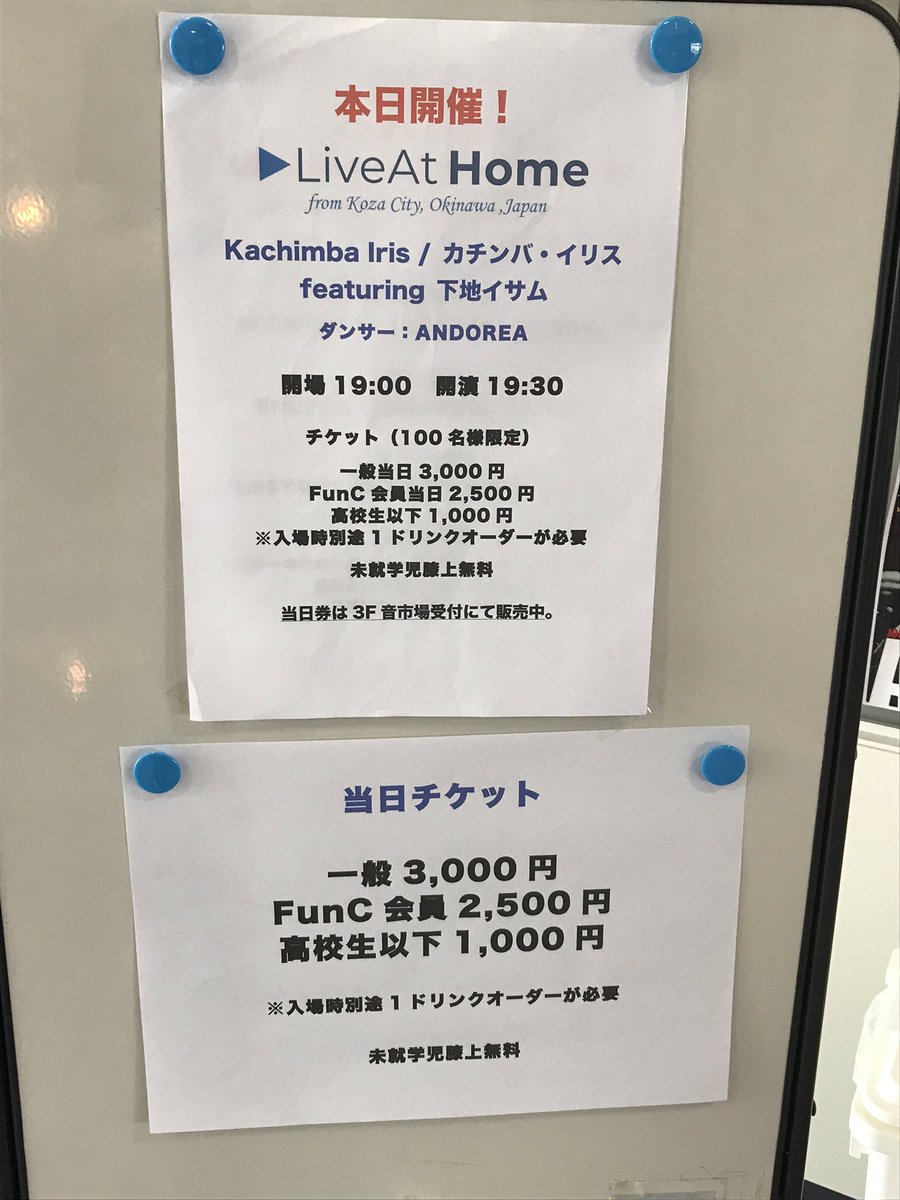 本日開催！
LiveAt Home
from Koza City, Okinawa ,Japan
Kachimba Iris / カチンバ・イリス
featuring 下地イサム
ダンサー：ANDOREA
開場 19:00 開演 19:30
チケット（100 名様限定）
一般当日 3,000 円
FunC 会員当日 2,500 円
高校生以下 1,000 円
※入場時別途 1 ドリンクオーダーが必要
未就学児膝上無料
当日券は 3F 音市場受付にて販売中。
当日チケット
一般 3,000 円
FunC 会員 2,500 円
高校生以下 1,000 円
※入場時別途 1 ドリンクオーダーが必要
未就学児膝上無料